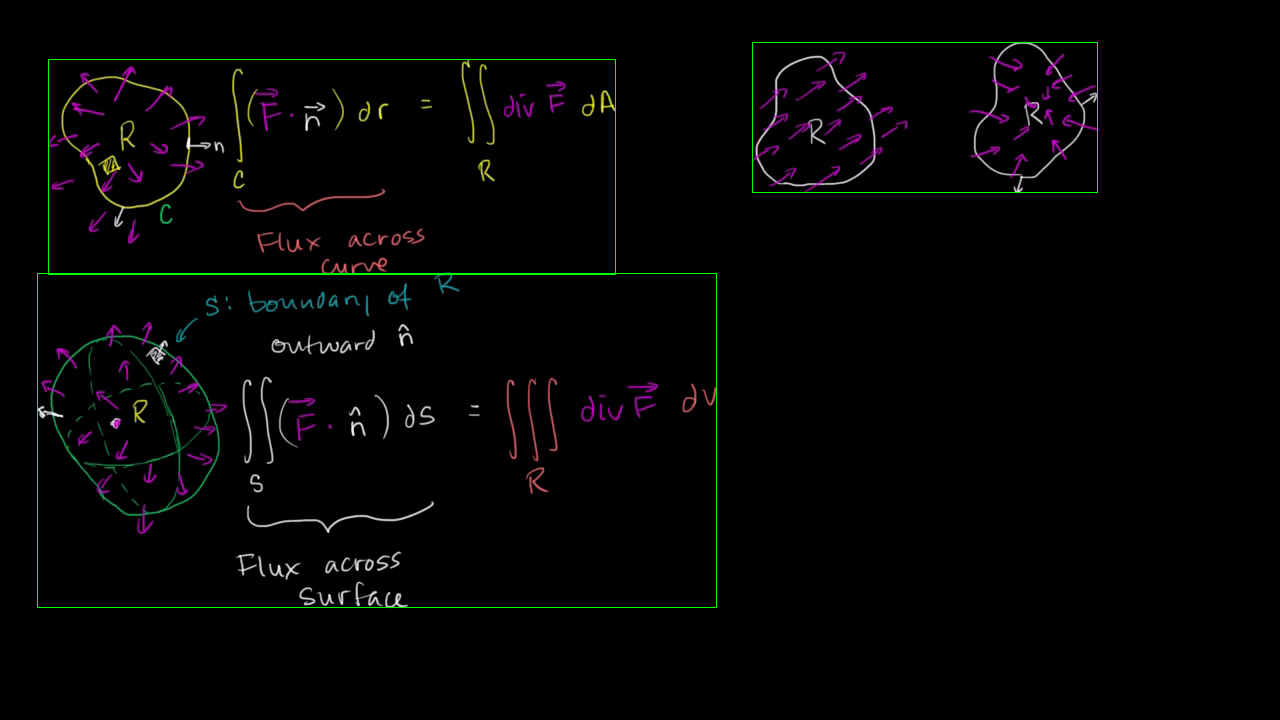 R
n
C
∫ (F⃗ · n⃗) dr = ∬ div F⃗ dA
C R
Flux across
curve
S: boundary of R
outward n̂
R
∬ (F⃗ · n̂) dS = ∭ div F⃗ dV
S R
Flux across
surface
R
R